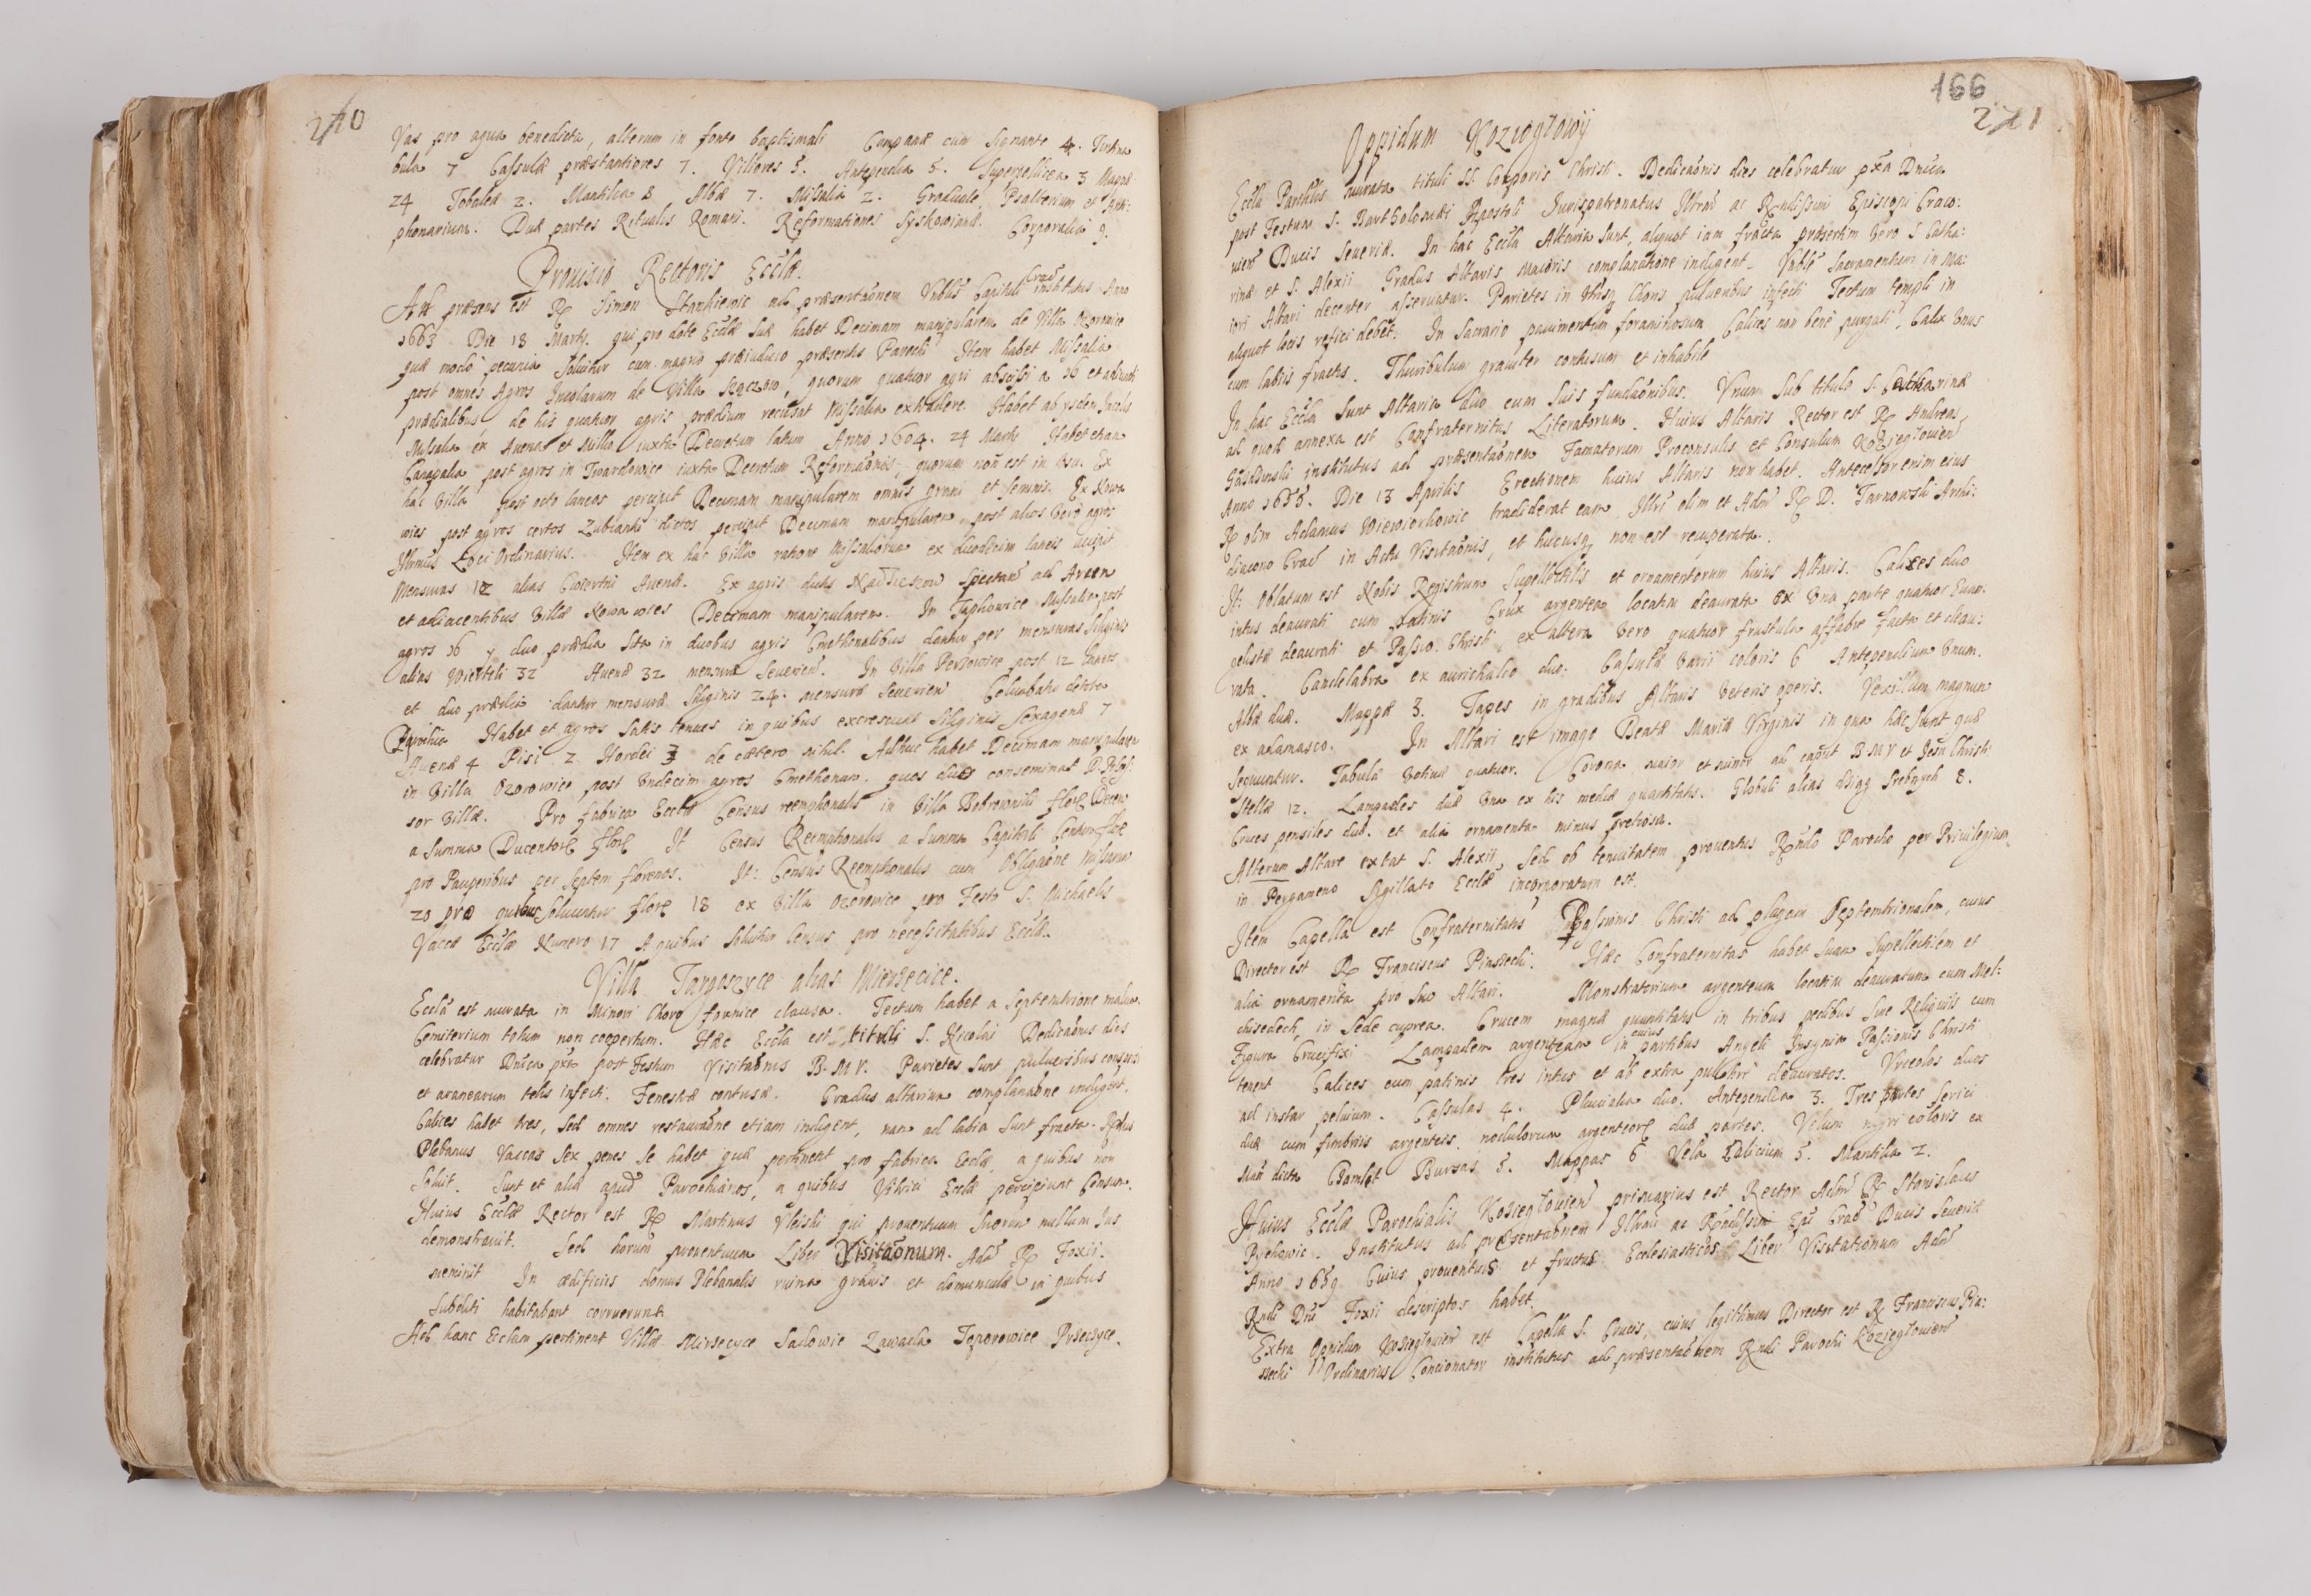 270
Vas pro aqua benedicta, alterum in fonte baptismali Campanæ cum signante 4. Turibu
bula 7 Casulæ præstantiores 7. Viliores 5. Antipendia 5. Superpellicea 3 Mappæ
24 Tobaleæ 2. Mantilia 8 Albæ 7. Missalia 2. Graduale, Psalterium et Anti:
phonarium. Duæ partes Ritualis Romani. Reformationes Lyskovianæ. Corporalia 9.
Prouisio Rectoris Ecclæ.
Ad præsens est R. Simon Stankiewic ad præsentãonem Vnblis Capituli Crac institutus Anno
1663 Die 18 Martij. qui pro dote Ecclæ suæ habet Decimam manipularem de Villa Ozorowice
quæ modò pecunia soluitur cum magno præiudicio præsentis Parochi Item habet Missalia
post omnes Agros Incolarum de Villa Sączow, quorum quatuor agri abscissi a 16 et
prædialibus de his quatuor agris prædium recusat Missalia extradere. Habet ab ysdem Incolis
Missalia ex Auena et Millio iuxta Decretum latum Anno 1604. 24 Martij Habet etiam
Canapalia post agros in Twardowice iuxta Decretum Reformãonis, quorum non est in vsu. Ex
hac Villa post octo laneos percipit Decimam manipularem omnis grani et seminis. Ex Nowa
wies post agros certos Zubianki dictos percipit Decimam manipularem, post alios verò agros
Illrmus Loci Ordinarius. Item ex hac Villa ratione Missaliorum ex duodecim laneis accipit
Mensuras 12 alias Cwiertni Auenæ. Ex agris dictis Nadzieszow spectan ad Arcem
et adiacentibus Villæ Nowa wies Decimam manipularem. In Tąpkowice Missalia post
agros 16 y duo prædia sita in duobus agris Cmethonalibus dantur per mensuras siliginis
alias Wierteli 32 Auenæ 32 mensuræ Seuerien. In Villa Perzowice post 12 laneos
et duo prædia dantur mensuræ siliginis 24. mensuræ Seuerien Columbatio detota
Parochia Habet et agros satis tenues in quibus excrescunt siliginis sexagenæ 7
Auenæ 4 Pisi 2 Hordei 3 de cætero nihil. Adhuc habet Decimam manipularem
in Villa Ozorowice post Vndecim agros Cmethonum. quos duos conseminat D. Posses:
sor Villæ. Pro fabrica Ecclæ Census reemptionalis in Villa Dobrowniki flor Decem
a summa Ducentor flor It Census Reemptionalis a Summa Capitali Centum flor
pro Pauperibus per septem florenos. It: Census Reemptionalis cum Obligãone Missarum
20 pro quibus soluuntur flor 18 ex Villa Ozorowice pro Festo S. Michaelis
Vaccæ Ecclæ Numero 17 A quibus soluitur Census pro necessitatibus Ecclæ.
Villa Targoszyce alias Mierzecice.
Eccla est murata in Minori Choro fornice clausa. Tectum habet a Septemtrione malum.
Cemiterium totum non coopertum. Hæc Eccla est tituli S. Nicolai Dedicãonis dies
celebratur Dnica pra post Festum Visitãonis B.M.V. Parietes sunt pulueribus conspersi
et aranearum telis infecti. Fenestræ contusæ. Gradus altarium complanãone indigent.
Calices habet tres, sed omnes restaurãone etiam indigent, nam ad labia sunt fracta. Ipsius
Plebanus Vaccas sex penes se habet quæ pertinent pro fabrica Ecclæ, a quibus non
soluit. Sunt et aliæ apud Parochianos, a quibus Vitrici Ecclæ percipiunt Censum.
Huius Ecclæ Rector est R. Martinus Vleiski qui prouentuum suorum nullum Ius
demonstrauit. Sed horum prouentuum Liber Visitãonum. Adm R. Foxii.
meminit In ædificiis domus Plebanalis ruina grauis et domunculæ in quibus
subditi habitabant corruerunt
Ad hanc Eclam pertinent Villæ Mirzecyce Sadowie Zawada Toporowice Przeczyce.
166
271
Oppidum Koziegłowy
Eccla Parchlis murata tituli SS. Corporis Christi. Dedicãonis dies celebratur pra Dnica
post Festum S. Bartholomæi Apostoli Iurispatronatus Illrmi ac Rndissimi Episcopi Craco:
vien Ducis Seueriæ. In hac Eccla Altaria sunt, aliquot iam fracta præsertim verò S. Catha:
rinæ et S. Alexii Gradus Altaris Maioris complanatione indigent. Vnble Sacramentum in Ma:
iori Altari decenter asseruatur. Parietes in vtrisq Choris pulueribus infecti Tectum templi in
aliquot locis refici debet. In sacrario pauimentum foraminosum Calices non bene purgati, Calix vnus
cum labiis fractis. Thuribulum grauiter contusum et inhabile
In hac Eccla sunt Altaria duo cum suis fundãonibus. Vnum sub titulo S. Catharinæ
ad quod annexa est Confraternitas Literatorum. Huius Altaris Rector est R. Andreas
institutus ad præsentãonem Famatorum Proconsulis et Consulum Koziegłovien
Anno 1655. Die 13 Aprilis Erectionem huius Altaris non habet. Antecessor enim eius
R. olim Adamus Wiewiorkowic tradiderat eam Illri olim et Adm R. D. Tarnowski Archi:
diacono Crac in Actu Visitãonis, et hucusq non est recuperata.
It: Oblatum est Nobis Registrum Supellectilis et ornamentorum huius Altaris. Calices duo
intus deaurati cum patinis Crux argentea locatim deaurata ex vna parte quatuor Euan:
gelistæ deaurati et Passio Christi, ex altera vero quatuor frustula affabre facta et deau:
rata. Candelabra ex aurichalco duo. Casulæ varii coloris 6 Antependium vnum.
Albæ duæ. Mappæ 3. Tapes in gradibus Altaris veteris operis. Vexillum magnum
ex adamasco. In Altari est imago Beatæ Mariæ Virginis in qua hæc sunt quæ
sequuntur. Tabulæ votiuæ quatuor. Corona maior et minor ad caput B M V et Jesu Christi
Stellæ 12. Lampades duæ vna ex his mediæ quantitatis. Globuli alias dziag srebnych 8.
Cruces pensiles duæ. et alia ornamenta minus pretiosa.
Alterum Altare extat S. Alexii, sed ob tenuitatem prouentus Rndo Parocho per Priuilegium
in Pergameno Sigillato Ecclæ incorporatum est.
Item Capella est Confraternitatis Passionis Christi ad plagam septemtrionalem, cuius
Director est R. Franciscus Piaskecki. Hæc Confraternitas habet suam supellectilem et
alia ornamenta pro suo Altari. Monstratorium argenteum locatim deauratum cum Mel:
chisedech, in sede cuprea. Crucem magnæ quantitatis in tribus pedibus sine Reliquiis cum
Figura Crucifixi Lampadem argenteam in cuius partibus Angeli Insignia Passionis Christi
tenent Calices cum patinis tres intus et ab extra pulchri deauratos. Vrceolos duos
ad instar peluium. Casulas 4. Pluuialia duo. Antependia 3. Tres partes serici
duæ cum fimbriis argenteis. nodulorum argenteor duæ partes. Velum nigri coloris ex
dicta Czamlet Bursas 5. Mappas 6 Vela Calicium 5. Mantilia 2.
Huius Ecclæ Parochialis Koziegłovien primarius est Rector Adm R. Stanislaus
Pychowic. Institutus ad præsentãonem Illrmi ac Rndissimi Epi Crac Ducis Seueriæ
Anno 1659 Cuius prouentus et fructus Ecclesiasticos Liber Visitationum Adm
Rndi Dni Foxii descriptos habet.
Extra Oppidum Koziegłovien est Capella S. Crucis, cuius legitimus Director est R. Franciscus Pia:
skecki Ordinarius Concionator institutus ad præsentãonem Rndi Parochi Koziegłovien